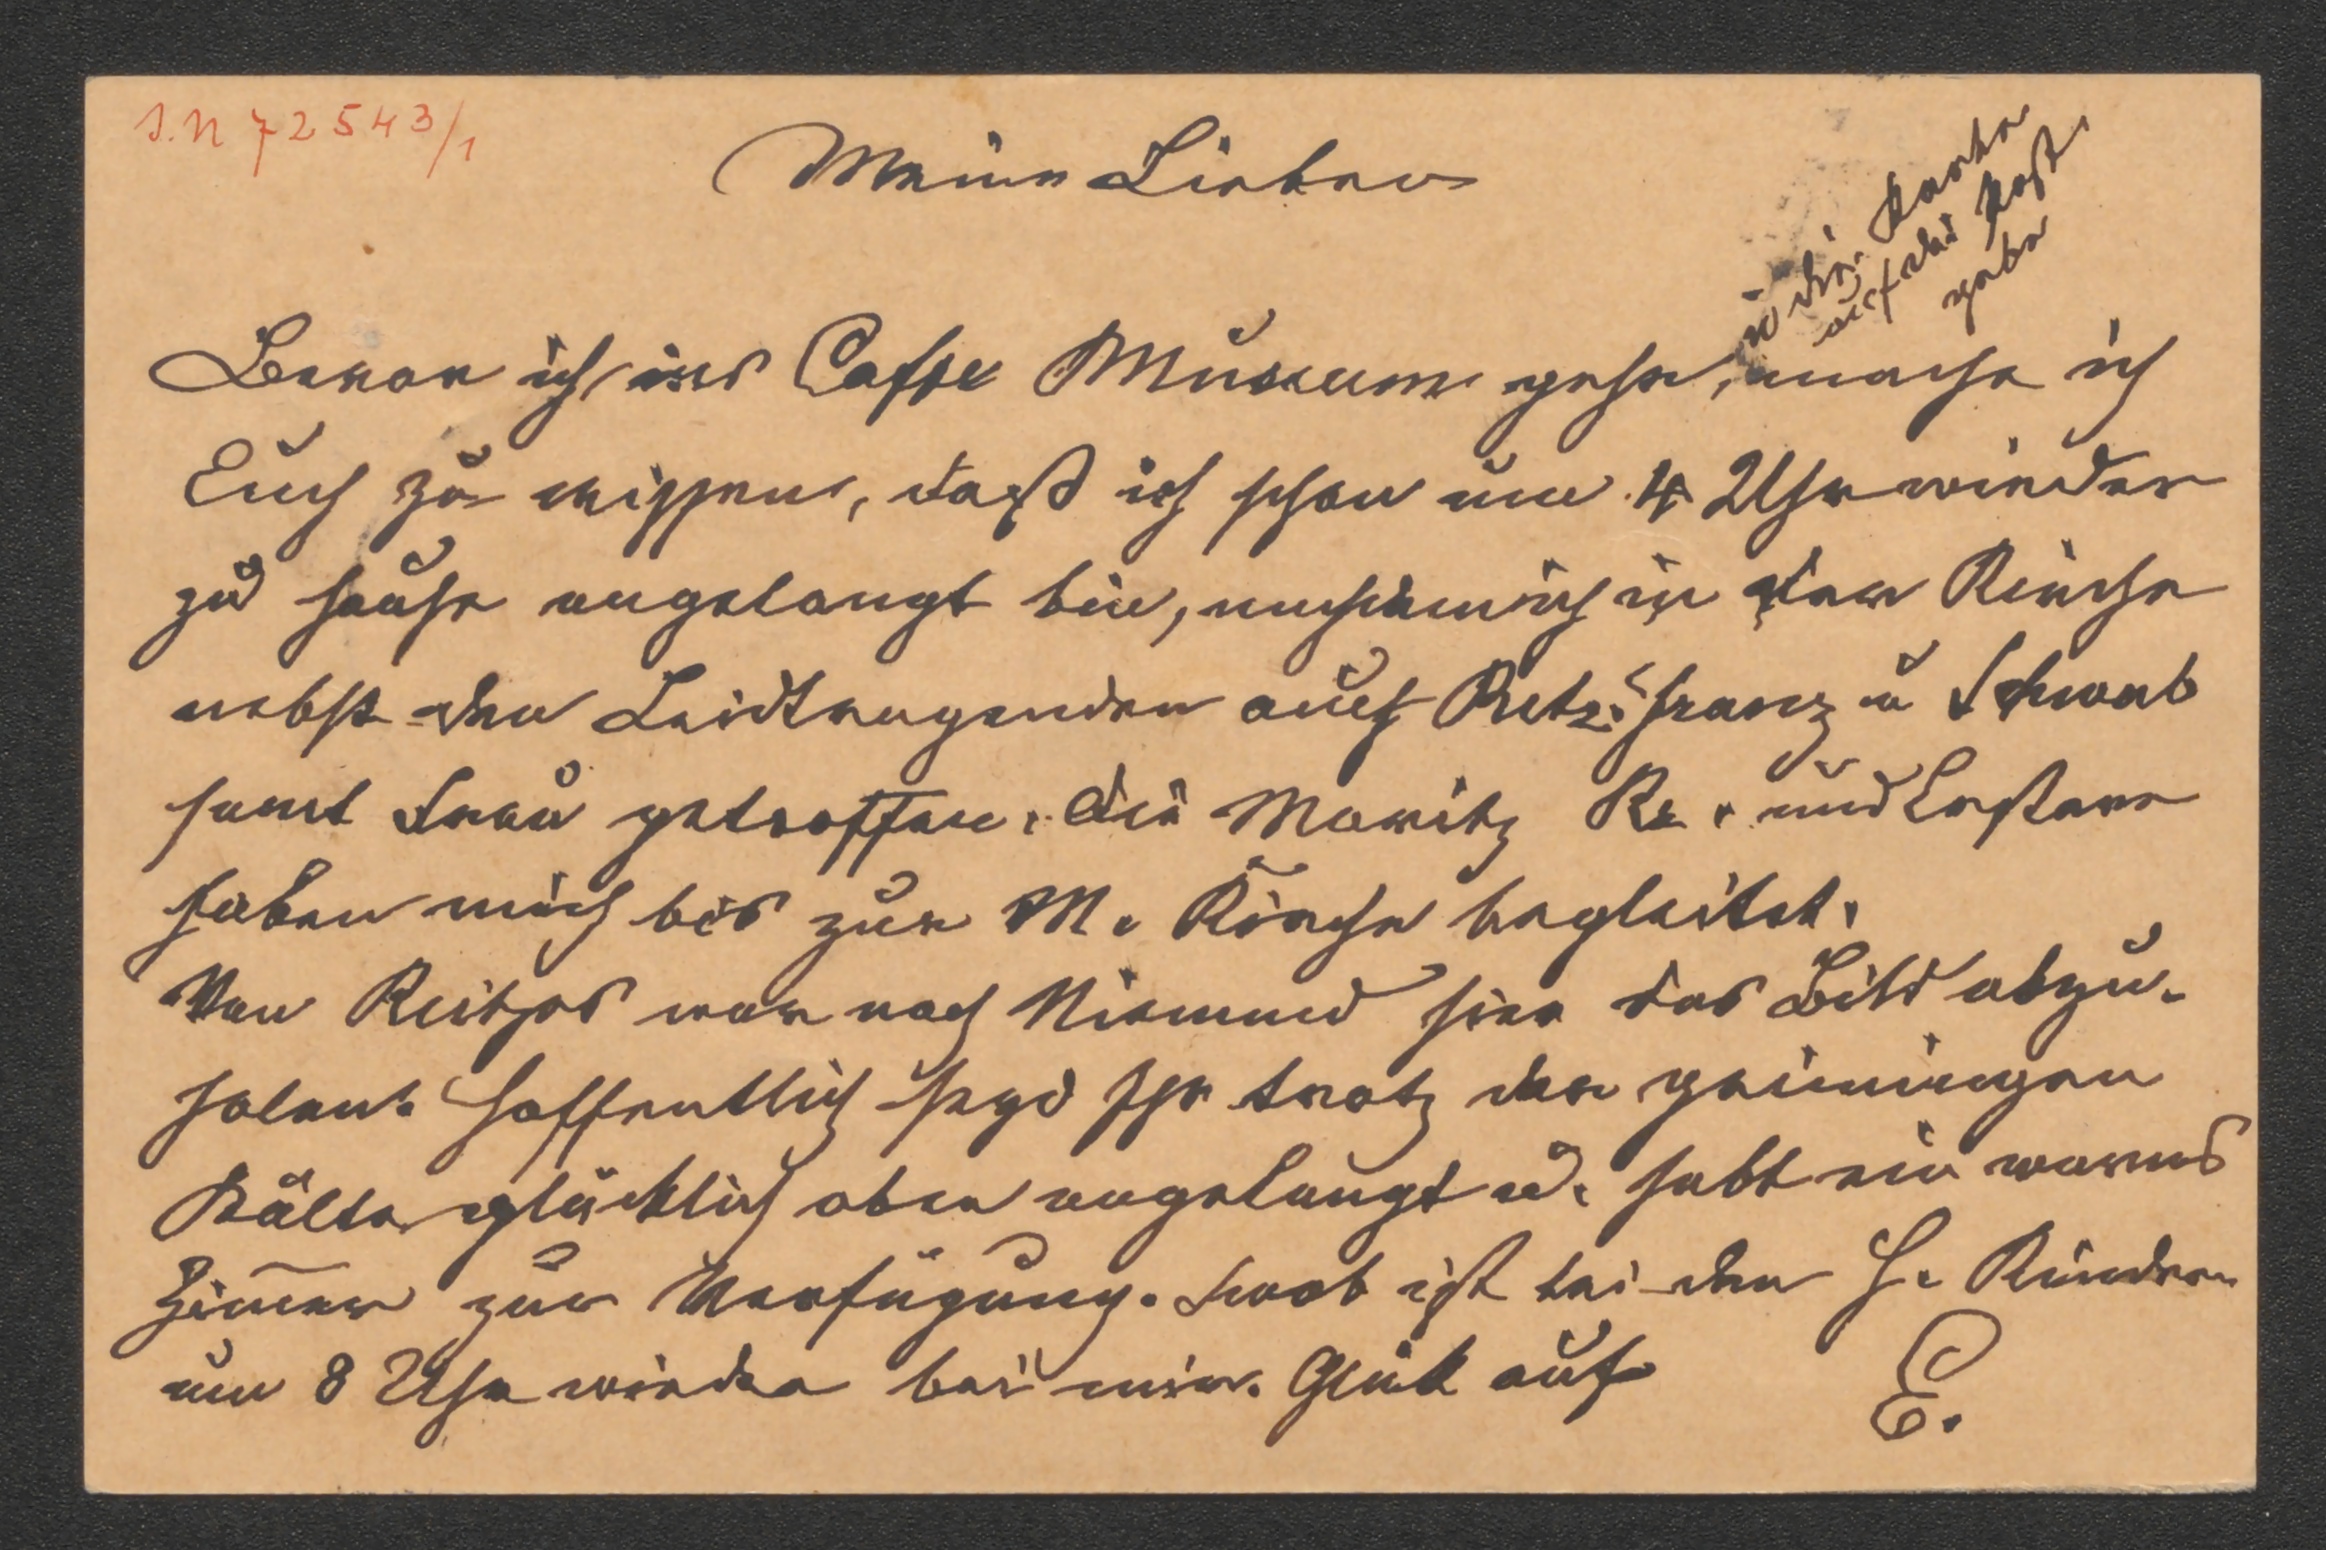 I.N 72543/1
Meine Lieben
u die Karte
auf die Post
gebe
Bevor ich ins Caffe Museum gehe, mache ich
Euch zu wissen, daß ich schon um 4 Uhr wieder
zu Hause angelangt bin, nachdem ich in der Kirche
nebst den Leidtragenden auch Franz u Schwab
samt Frau getroffen. Die Moritz und Erstere
haben mich bis zur M. Kirche begleitet.
Von war noch Niemand hier das Bild abzu-
holen. Hoffentlich seyd Ihr trotz der grimmigen
Kälte glücklich oben angelangt u. habt ein warmes
Zimmer zur Verfügung. ist bei den H. Kindern
um 8 Uhr wieder bei mir. Glück auf
E.